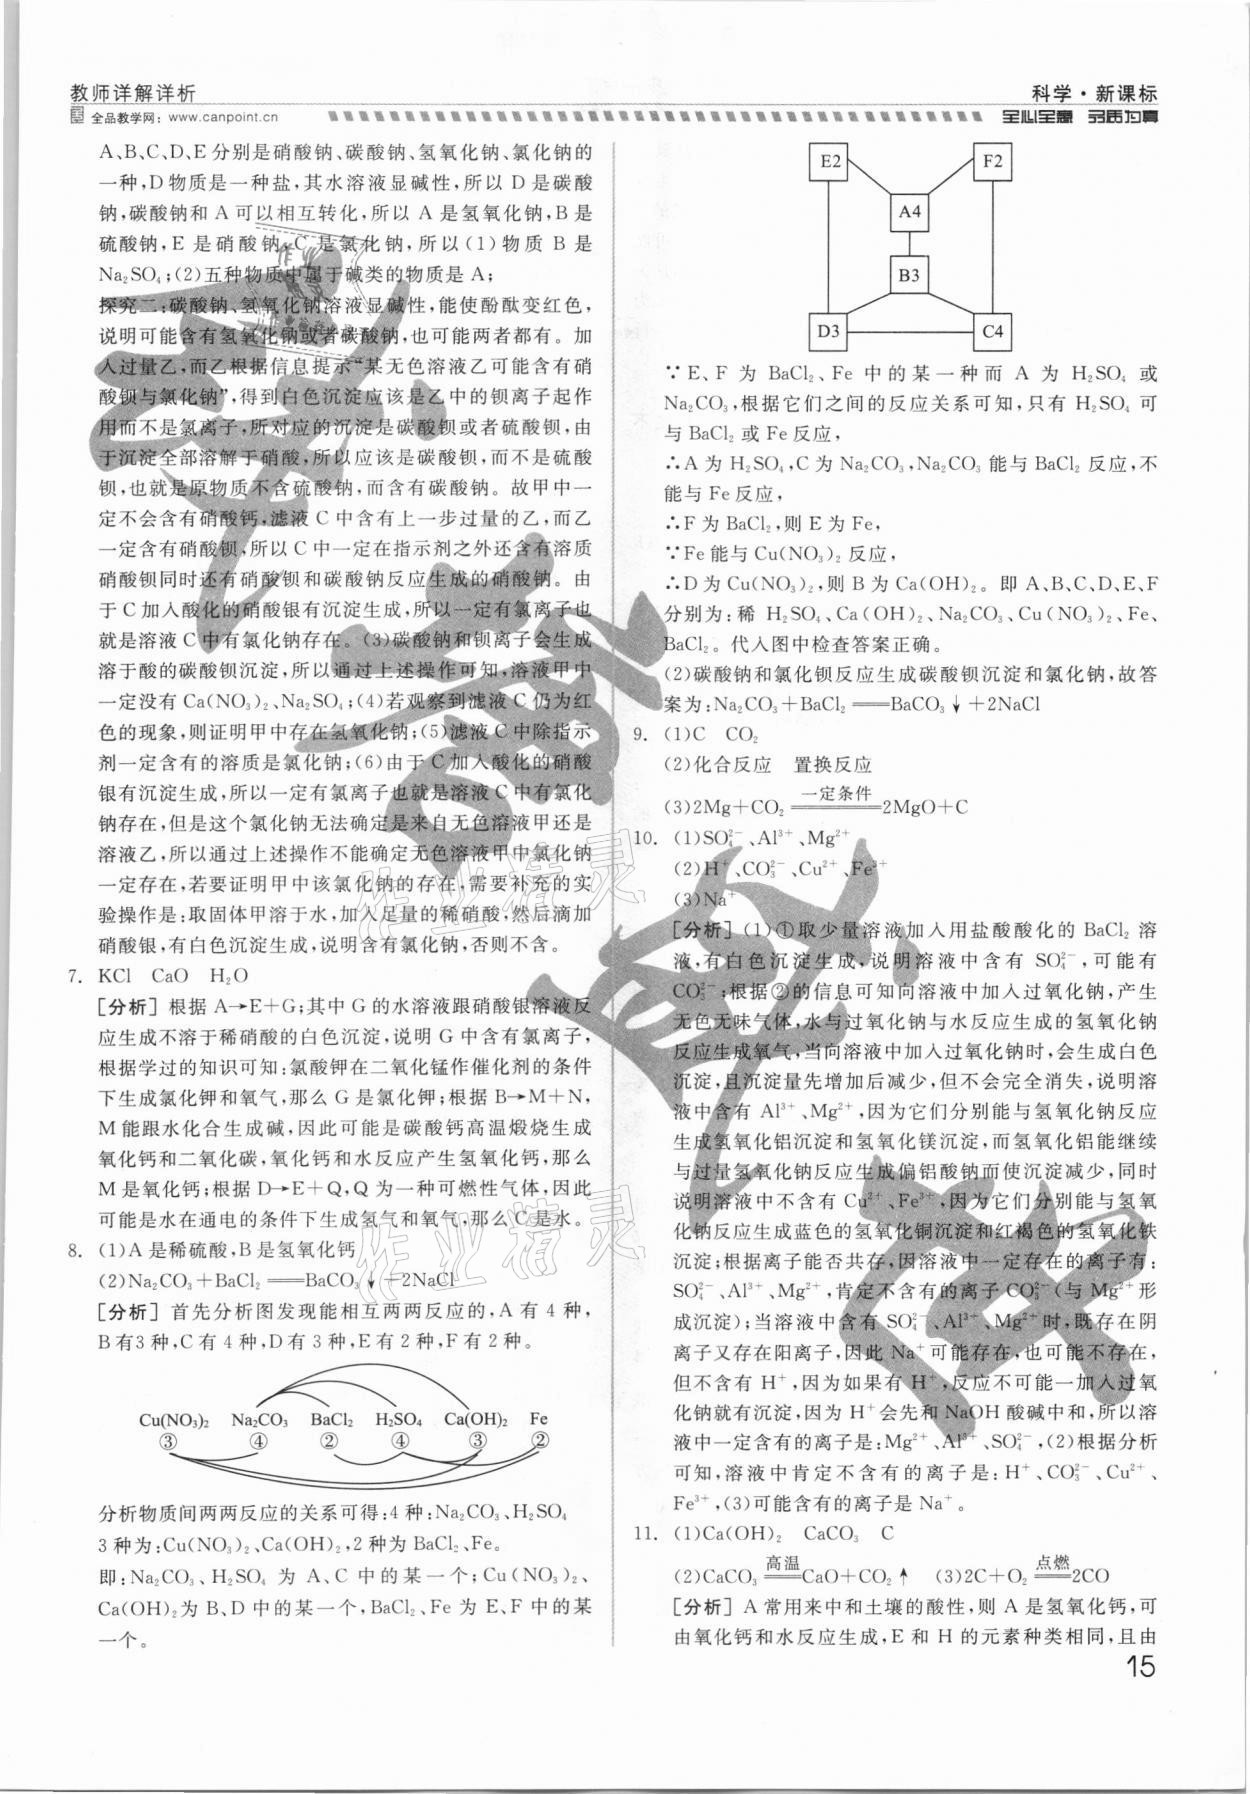 教师详解详析
科学·新课标
全品教学网：www.canpoint.cn
全心全意 品质为真
A、B、C、D、E分别是硝酸钠、碳酸钠、氢氧化钠、氯化钠的
一种，D物质是一种盐，其水溶液显碱性，所以 D 是碳酸
钠，碳酸钠和 A 可以相互转化，所以 A 是氢氧化钠，B 是
硫酸钠，E 是硝酸钠，C 是氯化钠，所以（1）物质 B 是
Na₂SO₄；（2）五种物质中属于碱类的物质是 A；
探究二：碳酸钠、氢氧化钠溶液显碱性，能使酚酞变红色，
说明可能含有氢氧化钠或者碳酸钠，也可能两者都有。加
入过量乙，而乙根据信息提示“某无色溶液乙可能含有硝
酸钡与氯化钠”，得到白色沉淀应该是乙中的钡离子起作
用而不是氯离子，所对应的沉淀是碳酸钡或者硫酸钡，由
于沉淀全部溶解于硝酸，所以应该是碳酸钡，而不是硫酸
钡，也就是原物质不含硫酸钠，而含有碳酸钠。故甲中一
定不会含有硝酸钙，滤液 C 中含有上一步过量的乙，而乙
一定含有硝酸钡，所以 C 中一定在指示剂之外还含有溶质
硝酸钡同时还有硝酸钡和碳酸钠反应生成的硝酸钠。由
于 C 加入酸化的硝酸银有沉淀生成，所以一定有氯离子也
就是溶液 C 中有氯化钠存在。（3）碳酸钠和钡离子会生成
溶于酸的碳酸钡沉淀，所以通过上述操作可知，溶液甲中
一定没有 Ca(NO₃)₂、Na₂SO₄；（4）若观察到滤液 C 仍为红
色的现象，则证明甲中存在氢氧化钠；（5）滤液 C 中除指示
剂一定含有的溶质是氯化钠；（6）由于 C 加入酸化的硝酸
银有沉淀生成，所以一定有氯离子也就是溶液 C 中有氯化
钠存在，但是这个氯化钠无法确定是来自无色溶液甲还是
溶液乙，所以通过上述操作不能确定无色溶液甲中氯化钠
一定存在，若要证明甲中该氯化钠的存在，需要补充的实
验操作是：取固体甲溶于水，加入足量的稀硝酸，然后滴加
硝酸银，有白色沉淀生成，说明含有氯化钠，否则不含。
7. KCl CaO H₂O
[分析] 根据 A→E+G；其中 G 的水溶液跟硝酸银溶液反
应生成不溶于稀硝酸的白色沉淀，说明 G 中含有氯离子，
根据学过的知识可知：氯酸钾在二氧化锰作催化剂的条件
下生成氯化钾和氧气，那么 G 是氯化钾；根据 B→M+N，
M 能跟水化合生成碱，因此可能是碳酸钙高温煅烧生成
氧化钙和二氧化碳，氧化钙和水反应产生氢氧化钙，那么
M 是氧化钙；根据 D→E+Q，Q 为一种可燃性气体，因此
可能是水在通电的条件下生成氢气和氧气，那么 C 是水。
8. (1)A 是稀硫酸，B 是氢氧化钙
(2)Na₂CO₃+BaCl₂══BaCO₃↓+2NaCl
[分析] 首先分析图发现能相互两两反应的，A 有 4 种，
B 有3 种，C 有 4 种，D 有 3 种，E 有 2 种，F 有 2 种。
Cu(NO₃)₂ Na₂CO₃ BaCl₂ H₂SO₄ Ca(OH)₂ Fe
③ ④ ② ④ ③ ②
分析物质间两两反应的关系可得：4 种：Na₂CO₃、H₂SO₄
3 种为：Cu(NO₃)₂、Ca(OH)₂，2 种为 BaCl₂、Fe。
即：Na₂CO₃、H₂SO₄ 为 A、C 中的某一个；Cu(NO₃)₂、
Ca(OH)₂为 B、D 中的某一个，BaCl₂、Fe 为 E、F 中的某
一个。
E2 F2
A4
B3
D3 C4
∵ E、F 为 BaCl₂、Fe 中的某一种而 A 为 H₂SO₄ 或
Na₂CO₃，根据它们之间的反应关系可知，只有 H₂SO₄ 可
与 BaCl₂ 或 Fe 反应，
∴A 为 H₂SO₄，C 为 Na₂CO₃，Na₂CO₃ 能与 BaCl₂ 反应，不
能与 Fe 反应，
∴F 为 BaCl₂，则 E 为 Fe，
∵Fe 能与 Cu(NO₃)₂ 反应，
∴D 为 Cu(NO₃)₂，则 B 为 Ca(OH)₂。即 A、B、C、D、E、F
分别为：稀 H₂SO₄、Ca(OH)₂、Na₂CO₃、Cu(NO₃)₂、Fe、
BaCl₂。代入图中检查答案正确。
(2)碳酸钠和氯化钡反应生成碳酸钡沉淀和氯化钠，故答
案为：Na₂CO₃+BaCl₂══BaCO₃↓+2NaCl
9. (1)C CO₂
(2)化合反应 置换反应
(3)2Mg+CO₂ 一定条件══ 2MgO+C
10. (1)SO₄²⁻、Al³⁺、Mg²⁺
(2)H⁺、CO₃²⁻、Cu²⁺、Fe³⁺
(3)Na⁺
[分析] (1)①取少量溶液加入用盐酸酸化的 BaCl₂ 溶
液，有白色沉淀生成，说明溶液中含有 SO₄²⁻，可能有
CO₃²⁻；根据②的信息可知向溶液中加入过氧化钠，产生
无色无味气体，水与过氧化钠与水反应生成的氢氧化钠
反应生成氧气，当向溶液中加入过氧化钠时，会生成白色
沉淀，且沉淀量先增加后减少，但不会完全消失，说明溶
液中含有 Al³⁺、Mg²⁺，因为它们分别能与氢氧化钠反应
生成氢氧化铝沉淀和氢氧化镁沉淀，而氢氧化铝能继续
与过量氢氧化钠反应生成偏铝酸钠而使沉淀减少，同时
说明溶液中不含有 Cu²⁺、Fe³⁺，因为它们分别能与氢氧
化钠反应生成蓝色的氢氧化铜沉淀和红褐色的氢氧化铁
沉淀；根据离子能否共存，因溶液中一定存在的离子有：
SO₄²⁻、Al³⁺、Mg²⁺，肯定不含有的离子 CO₃²⁻（与 Mg²⁺形
成沉淀）；当溶液中含有 SO₄²⁻、Al³⁺、Mg²⁺时，既存在阴
离子又存在阳离子，因此 Na⁺可能存在，也可能不存在，
但不含有 H⁺，因为如果有 H⁺，反应不可能一加入过氧
化钠就有沉淀，因为 H⁺会先和 NaOH 酸碱中和，所以溶
液中一定含有的离子是：Mg²⁺、Al³⁺、SO₄²⁻，(2)根据分析
可知，溶液中肯定不含有的离子是：H⁺、CO₃²⁻、Cu²⁺、
Fe³⁺，(3)可能含有的离子是 Na⁺。
11. (1)Ca(OH)₂ CaCO₃ C
(2)CaCO₃ 高温══ CaO+CO₂↑ (3)2C+O₂ 点燃══ 2CO
[分析] A 常用来中和土壤的酸性，则 A 是氢氧化钙，可
由氧化钙和水反应生成，E 和 H 的元素种类相同，且由
15
作业精灵
作业精灵